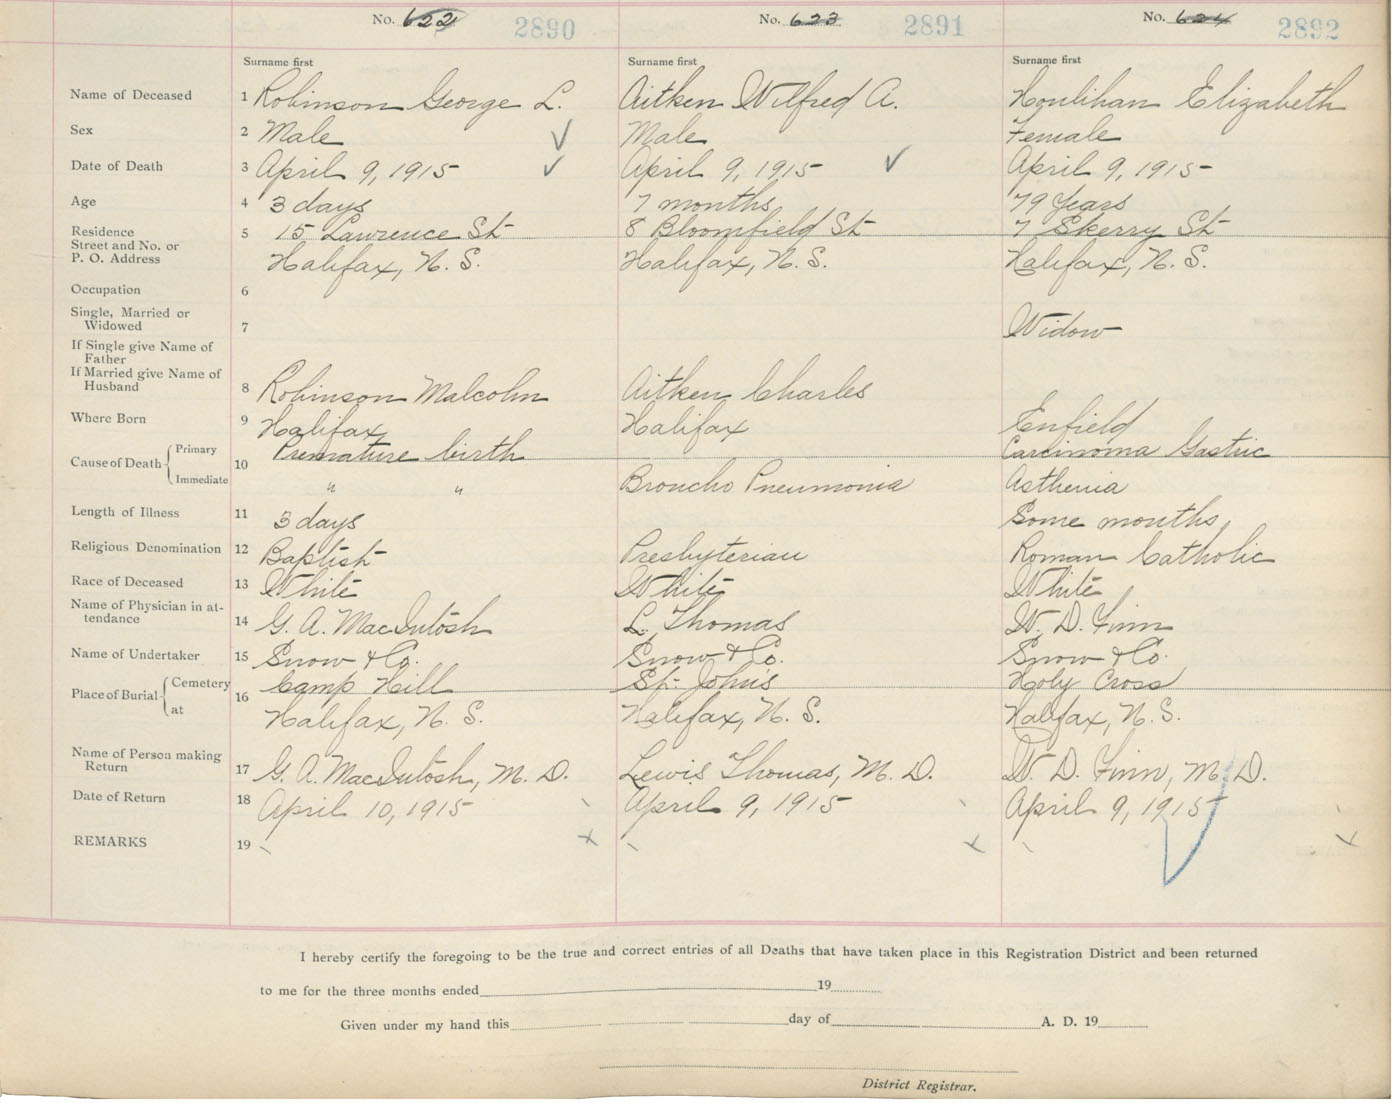 No. 622 2890 No. 623 2891 No. 624 2892
Surname first Surname first Surname first
Name of Deceased 1 Robinson George L. Aitken Wilfred A. Houlihan Elizabeth
Sex 2 Male Male Female
Date of Death 3 April 9, 1915 April 9, 1915 April 9, 1915
Age 4 3 days 7 months 79 Years
Residence 5 15 Lawrence St 8 Bloomfield St 7 Skerry St
Street and No. or
P. O. Address Halifax, N. S. Halifax, N. S. Halifax, N. S.
Occupation 6
Single, Married or
Widowed 7 Widow
If Single give Name of
Father
If Married give Name of
Husband 8 Robinson Malcolm Aitken Charles
Where Born 9 Halifax Halifax Enfield
Cause of Death Primary 10 Premature birth Carcinoma Gastric
Immediate " " Broncho Pneumonia Asthenia
Length of Illness 11 3 days Some months
Religious Denomination 12 Baptist Presbyterian Roman Catholic
Race of Deceased 13 White White White
Name of Physician in at-
tendance 14 G. A. MacIntosh L. Thomas W. D. Finn
Name of Undertaker 15 Snow & Co. Snow & Co. Snow & Co.
Place of Burial Cemetery 16 Camp Hill St. John's Holy Cross
at Halifax, N. S. Halifax, N. S. Halifax, N. S.
Name of Person making
Return 17 G. A. MacIntosh, M. D. Lewis Thomas, M. D. W. D. Finn, M. D.
Date of Return 18 April 10, 1915 April 9, 1915 April 9, 1915
REMARKS 19
I hereby certify the foregoing to be the true and correct entries of all Deaths that have taken place in this Registration District and been returned
to me for the three months ended 19
Given under my hand this day of A. D. 19
District Registrar.